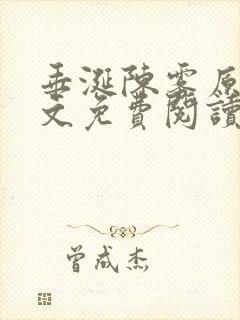 垂涎陳雾原
文免費閱讀
曾成杰